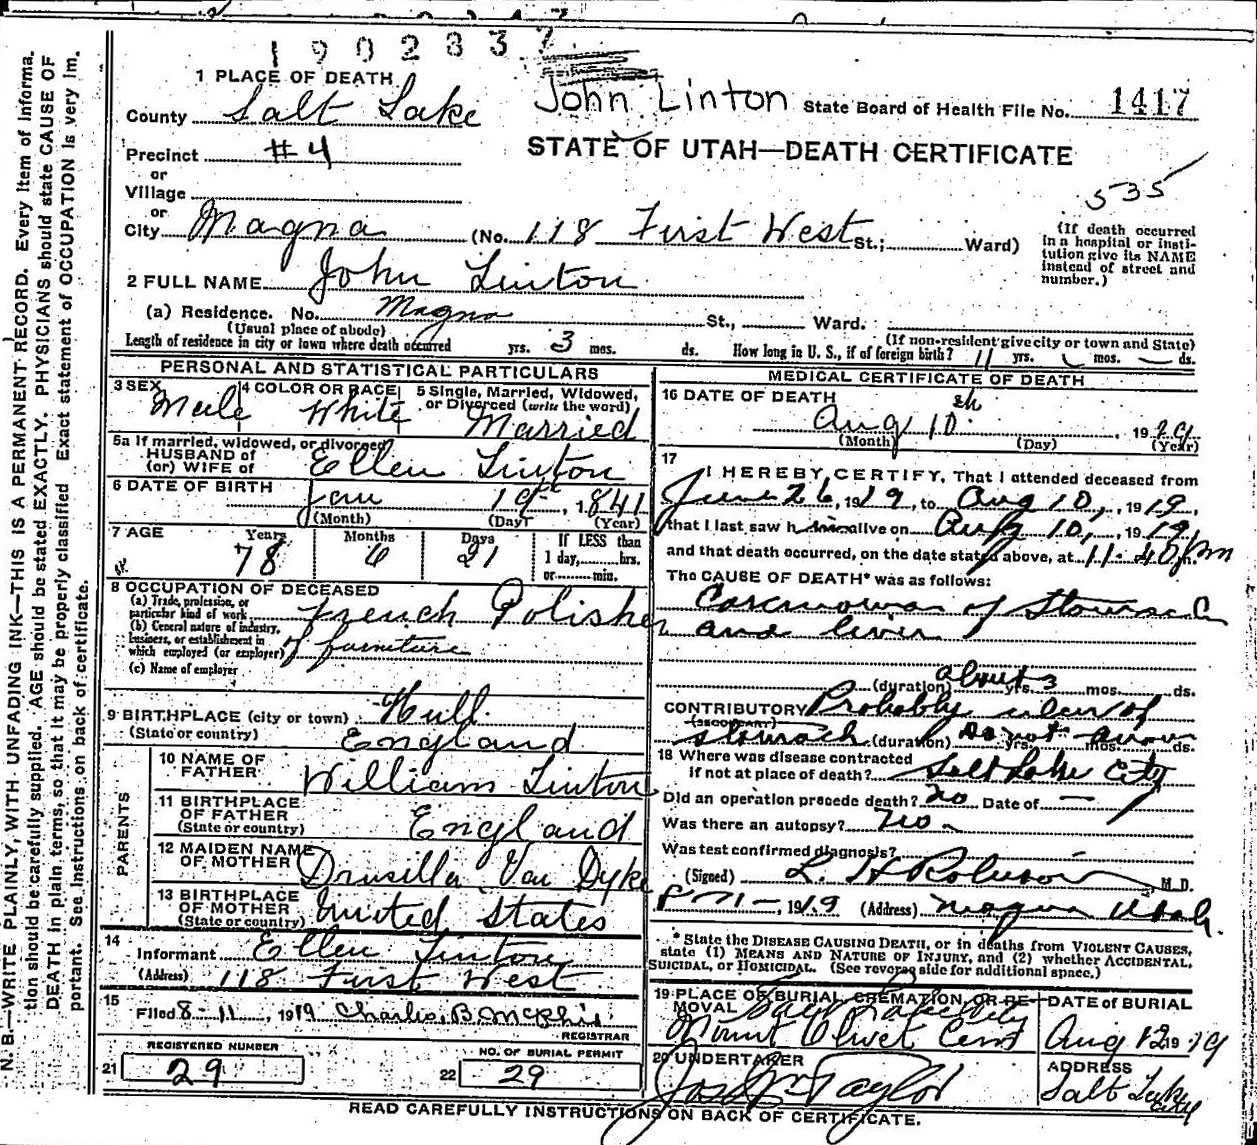 1902837
1 PLACE OF DEATH
County Salt Lake John Linton State Board of Health File No. 1417
Precinct #4 STATE OF UTAH—DEATH CERTIFICATE
or
Village 535
or
City Magna (No. 118 First West St.; Ward) (If death occurred in a hospital or institution give its NAME instead of street and number.)
2 FULL NAME John Linton
(a) Residence. No. Magna St., Ward.
(Usual place of abode) (If non-resident give city or town and State)
Length of residence in city or town where death occurred yrs. 3 mos. ds. How long in U. S., if of foreign birth? 11 yrs. mos. — ds.
PERSONAL AND STATISTICAL PARTICULARS
3 SEX 4 COLOR OR RACE 5 Single, Married, Widowed, or Divorced (write the word)
Male White Married
5a If married, widowed, or divorced
HUSBAND of
(or) WIFE of Ellen Linton
6 DATE OF BIRTH Jan 19th, 1841
(Month) (Day) (Year)
7 AGE Years Months Days If LESS than
78 6 21 1 day, hrs.
or min.
8 OCCUPATION OF DECEASED
(a) Trade, profession, or particular kind of work French Polisher
(b) General nature of industry, business, or establishment in which employed (or employer) of furniture
(c) Name of employer
9 BIRTHPLACE (city or town) Hull
(State or country) England
PARENTS
10 NAME OF FATHER William Linton
11 BIRTHPLACE OF FATHER (State or country) England
12 MAIDEN NAME OF MOTHER Drusilla Van Dyke
13 BIRTHPLACE OF MOTHER (State or country) United States
14 Informant Ellen Linton
(Address) 118 First West
15 Filed 8-11, 1919 Charles B. McPhie
REGISTRAR
REGISTERED NUMBER NO. OF BURIAL PERMIT
21 29 22 29
MEDICAL CERTIFICATE OF DEATH
16 DATE OF DEATH
Aug 10th, 1919
(Month) (Day) (Year)
17 I HEREBY CERTIFY, That I attended deceased from
June 26, 1919, to Aug 10, 1919,
that I last saw him alive on Aug 10, 1919,
and that death occurred, on the date stated above, at 11:40 pm
The CAUSE OF DEATH* was as follows:
Carcinoma of Stomach
and liver
(duration) about yrs. 3 mos. ds.
CONTRIBUTORY Probably ulcer of
(SECONDARY)
stomach (duration) Do not know yrs. mos. ds.
18 Where was disease contracted
if not at place of death? Salt Lake City
Did an operation precede death? No Date of —
Was there an autopsy? No
Was test confirmed diagnosis?
(Signed) L. H. Robinson M. D.
8-11-, 1919 (Address) Magna Utah.
* State the DISEASE CAUSING DEATH, or in deaths from VIOLENT CAUSES,
state (1) MEANS AND NATURE OF INJURY, and (2) whether ACCIDENTAL,
SUICIDAL, or HOMICIDAL. (See reverse side for additional space.)
19 PLACE OF BURIAL, CREMATION, OR REMOVAL DATE OF BURIAL
Salt Lake City
Mount Olivet Cem Aug 12 1919
20 UNDERTAKER ADDRESS
Jos Wm Taylor Salt Lake City
READ CAREFULLY INSTRUCTIONS ON BACK OF CERTIFICATE.
N. B.—WRITE PLAINLY, WITH UNFADING INK—THIS IS A PERMANENT RECORD. Every item of informa-
tion should be carefully supplied. AGE should be stated EXACTLY. PHYSICIANS should state CAUSE OF
DEATH in plain terms, so that it may be properly classified. Exact statement of OCCUPATION is very im-
portant. See instructions on back of certificate.